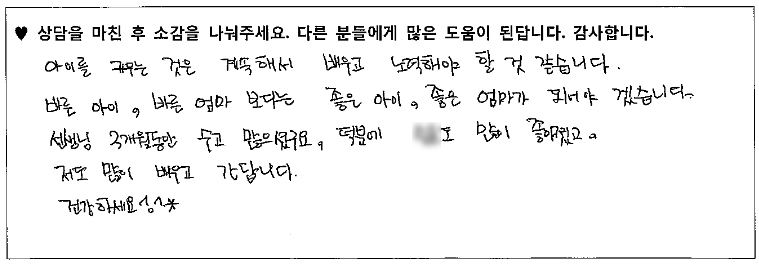 ♥ 상담을 마친 후 소감을 나눠주세요. 다른 분들에게 많은 도움이 된답니다. 감사합니다.
아이를 키우는 것은 계속해서 배우고 노력해야 할 것 같습니다.
바른 아이, 바른 엄마 보다는 좋은 아이, 좋은 엄마가 되어야 겠습니다.
선생님 3개월동안 수고 많으셨구요, 덕분에 도 많이 좋아졌고.
저도 많이 배우고 갑니다.
건강하세요^^